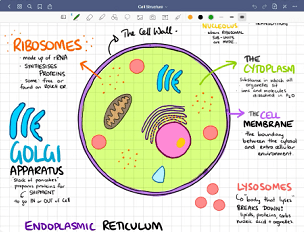 Cell Structure
The Cell Wall
NUCLEOUS
where RIBOSOMAL
SUB-UNITS
are MADE.
RIBOSOMES
made up of rRNA
SYNTHESISES
PROTEINS
some free or
found on ROUGH ER
THE
CYTOPLASM
substance in which all
organelles sit
ions and molecules
dissolved in H2O
THE CELL
MEMBRANE
the boundary
between the cytosol
and extra cellular
environment.
GOLGI
APPARATUS
"Stack of pancakes"
prepares proteins for
SHIPMENT
to go IN or OUT of CELL
LYSOSOMES
"body that lyses"
BREAKS DOWN:
lipids, proteins, carbs
nucleic acid + organelles
ENDOPLASMIC RETICULUM